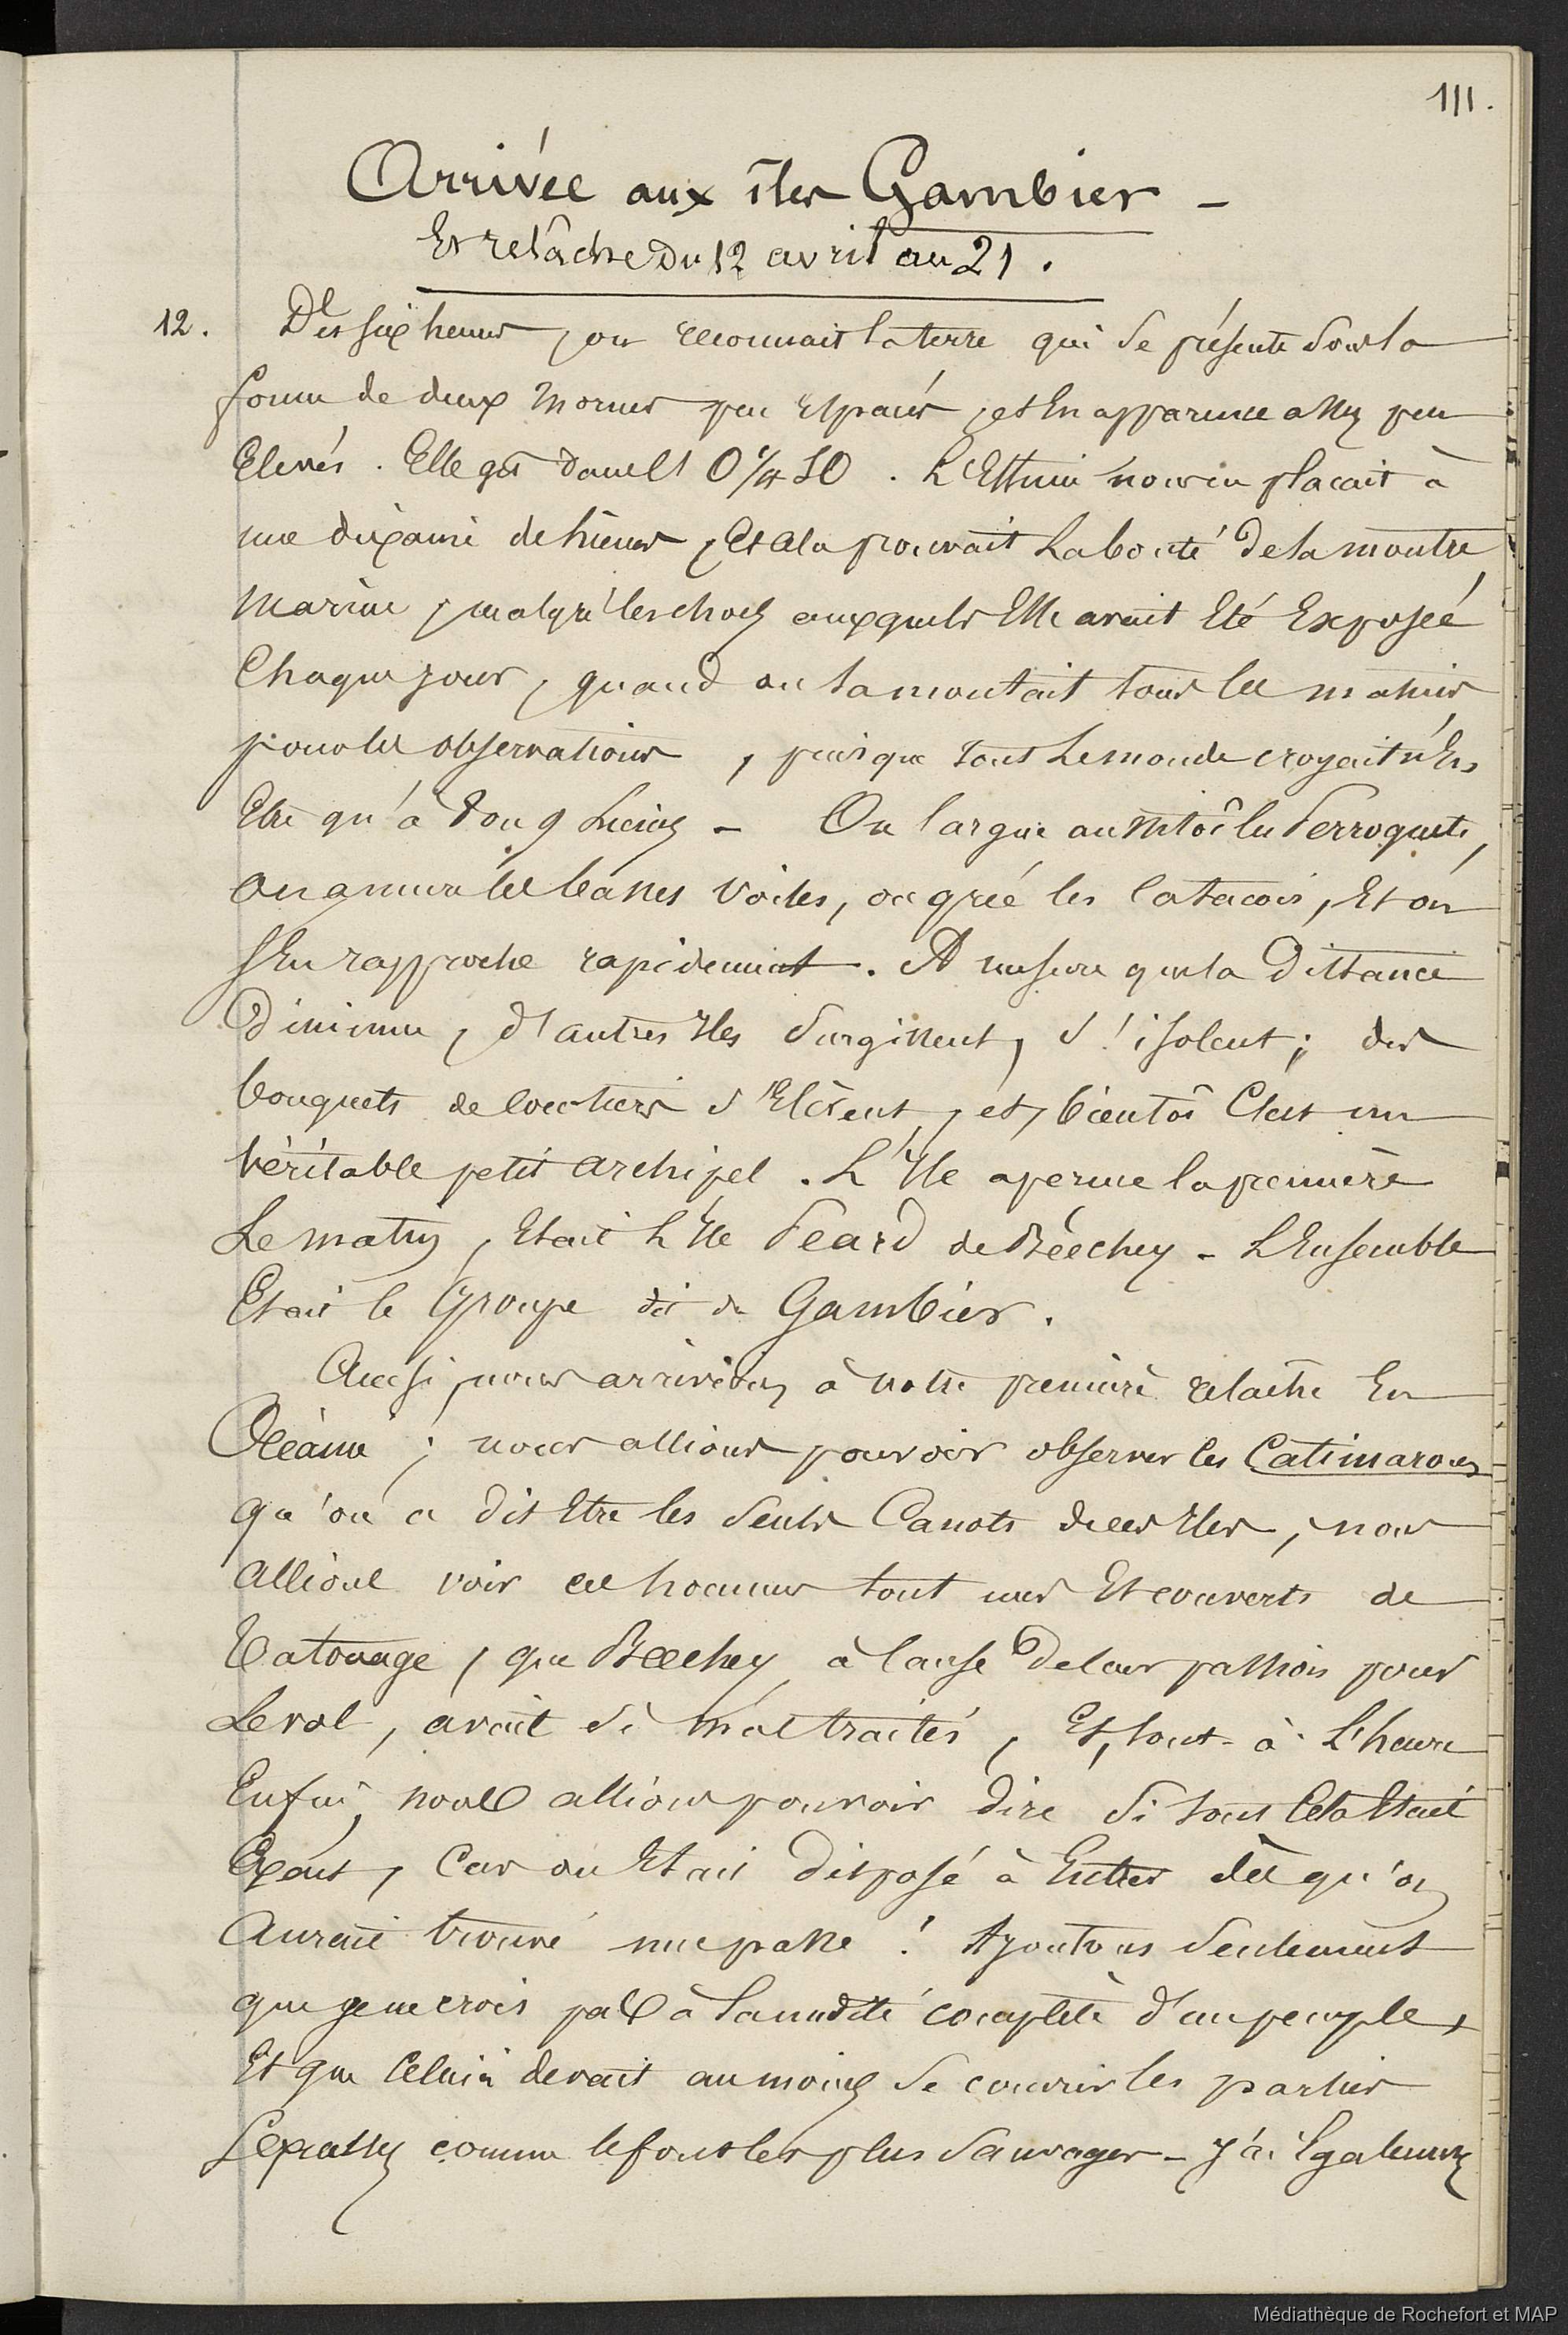 111.
Arrivée aux îles Gambier –
Et relâche du 12 avril au 21.
12. Dès six heures, on reconnait la terre qui se présente sous la
forme de deux mornes peu espacés, et en apparence assez peu
élevés. Elle gît dans l'O ¼ SO. L'Estime nous en plaçait à
une dixaine de lieues, et cela prouvait la bonté de la montre
marine, malgré les chocs auxquels Elle avait Eté Exposée
Chaque jour, quand on la montait tous les matins
pour les observations, puisque tout le monde croyait n'En
Etre qu'à 8 ou 9 lieues – On largue aussitôt les Perroquets,
on amure les basses voiles, on grée les Catacois, Et on
s'En rapproche rapidement. A mesure que la Distance
Diminue, d'autres Iles surgissent, s'isolent; des
bouquets de cocotiers s'Elèvent, et, bientôt C'est un
véritable petit archipel. L'Ile aperçue la première
Le matin, Etait L'Ile Peard de Béechey – L'Ensemble
Etait le Groupe dit de Gambier.
Aussi, nous arrivions à notre première relâche En
Océanie; nous allions pouvoir observer les Catimarons
qu'on a dit Etre les seuls Canots de ces Iles, nous
allions voir ces hommes tout nus Et couverts de
Tatouage, que Beechey, à cause de leur passion pour
Le vol, avait si maltraités, Et, tout-à-L'heure
Enfin, nous allions pouvoir dire si tout Cela Etait
Exact, Car on Etait Disposé à Entrer dès qu'on
Aurait trouvé une passe! Ajoutons seulement
que je ne crois pas à la nudité complète d'un peuple,
Et que Celui-ci devait au moins se couvrir les parties
sexuelles comme le font les plus sauvages – J'ai Egalement
Médiathèque de Rochefort et MAP